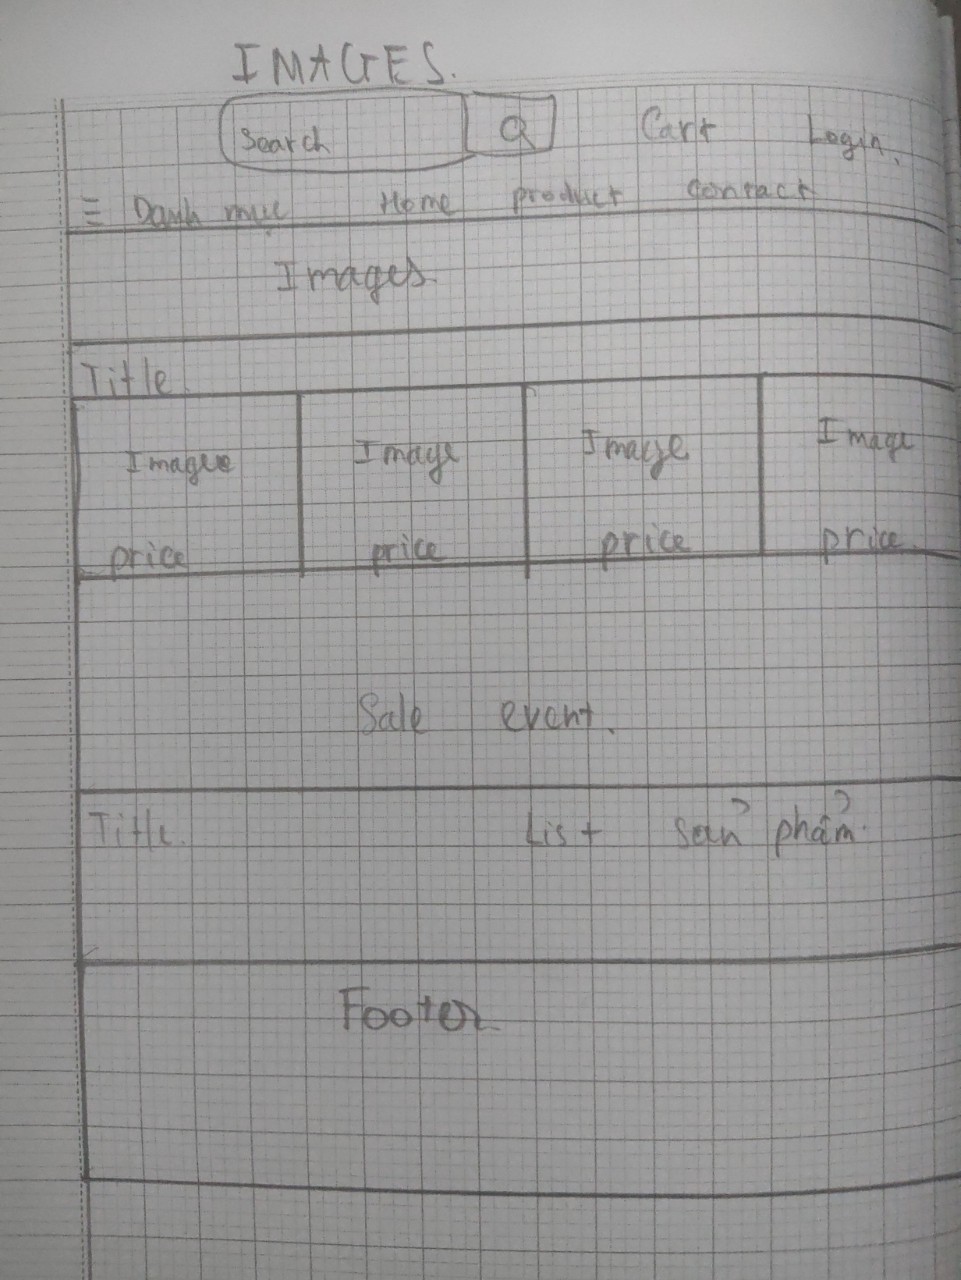 IMAGES.
Search Cart Login.
≡ Danh mục Home product contact
Images.
Title.
Image Image Image Image
price price price price.
Sale event.
Title. List sản phẩm.
Footer